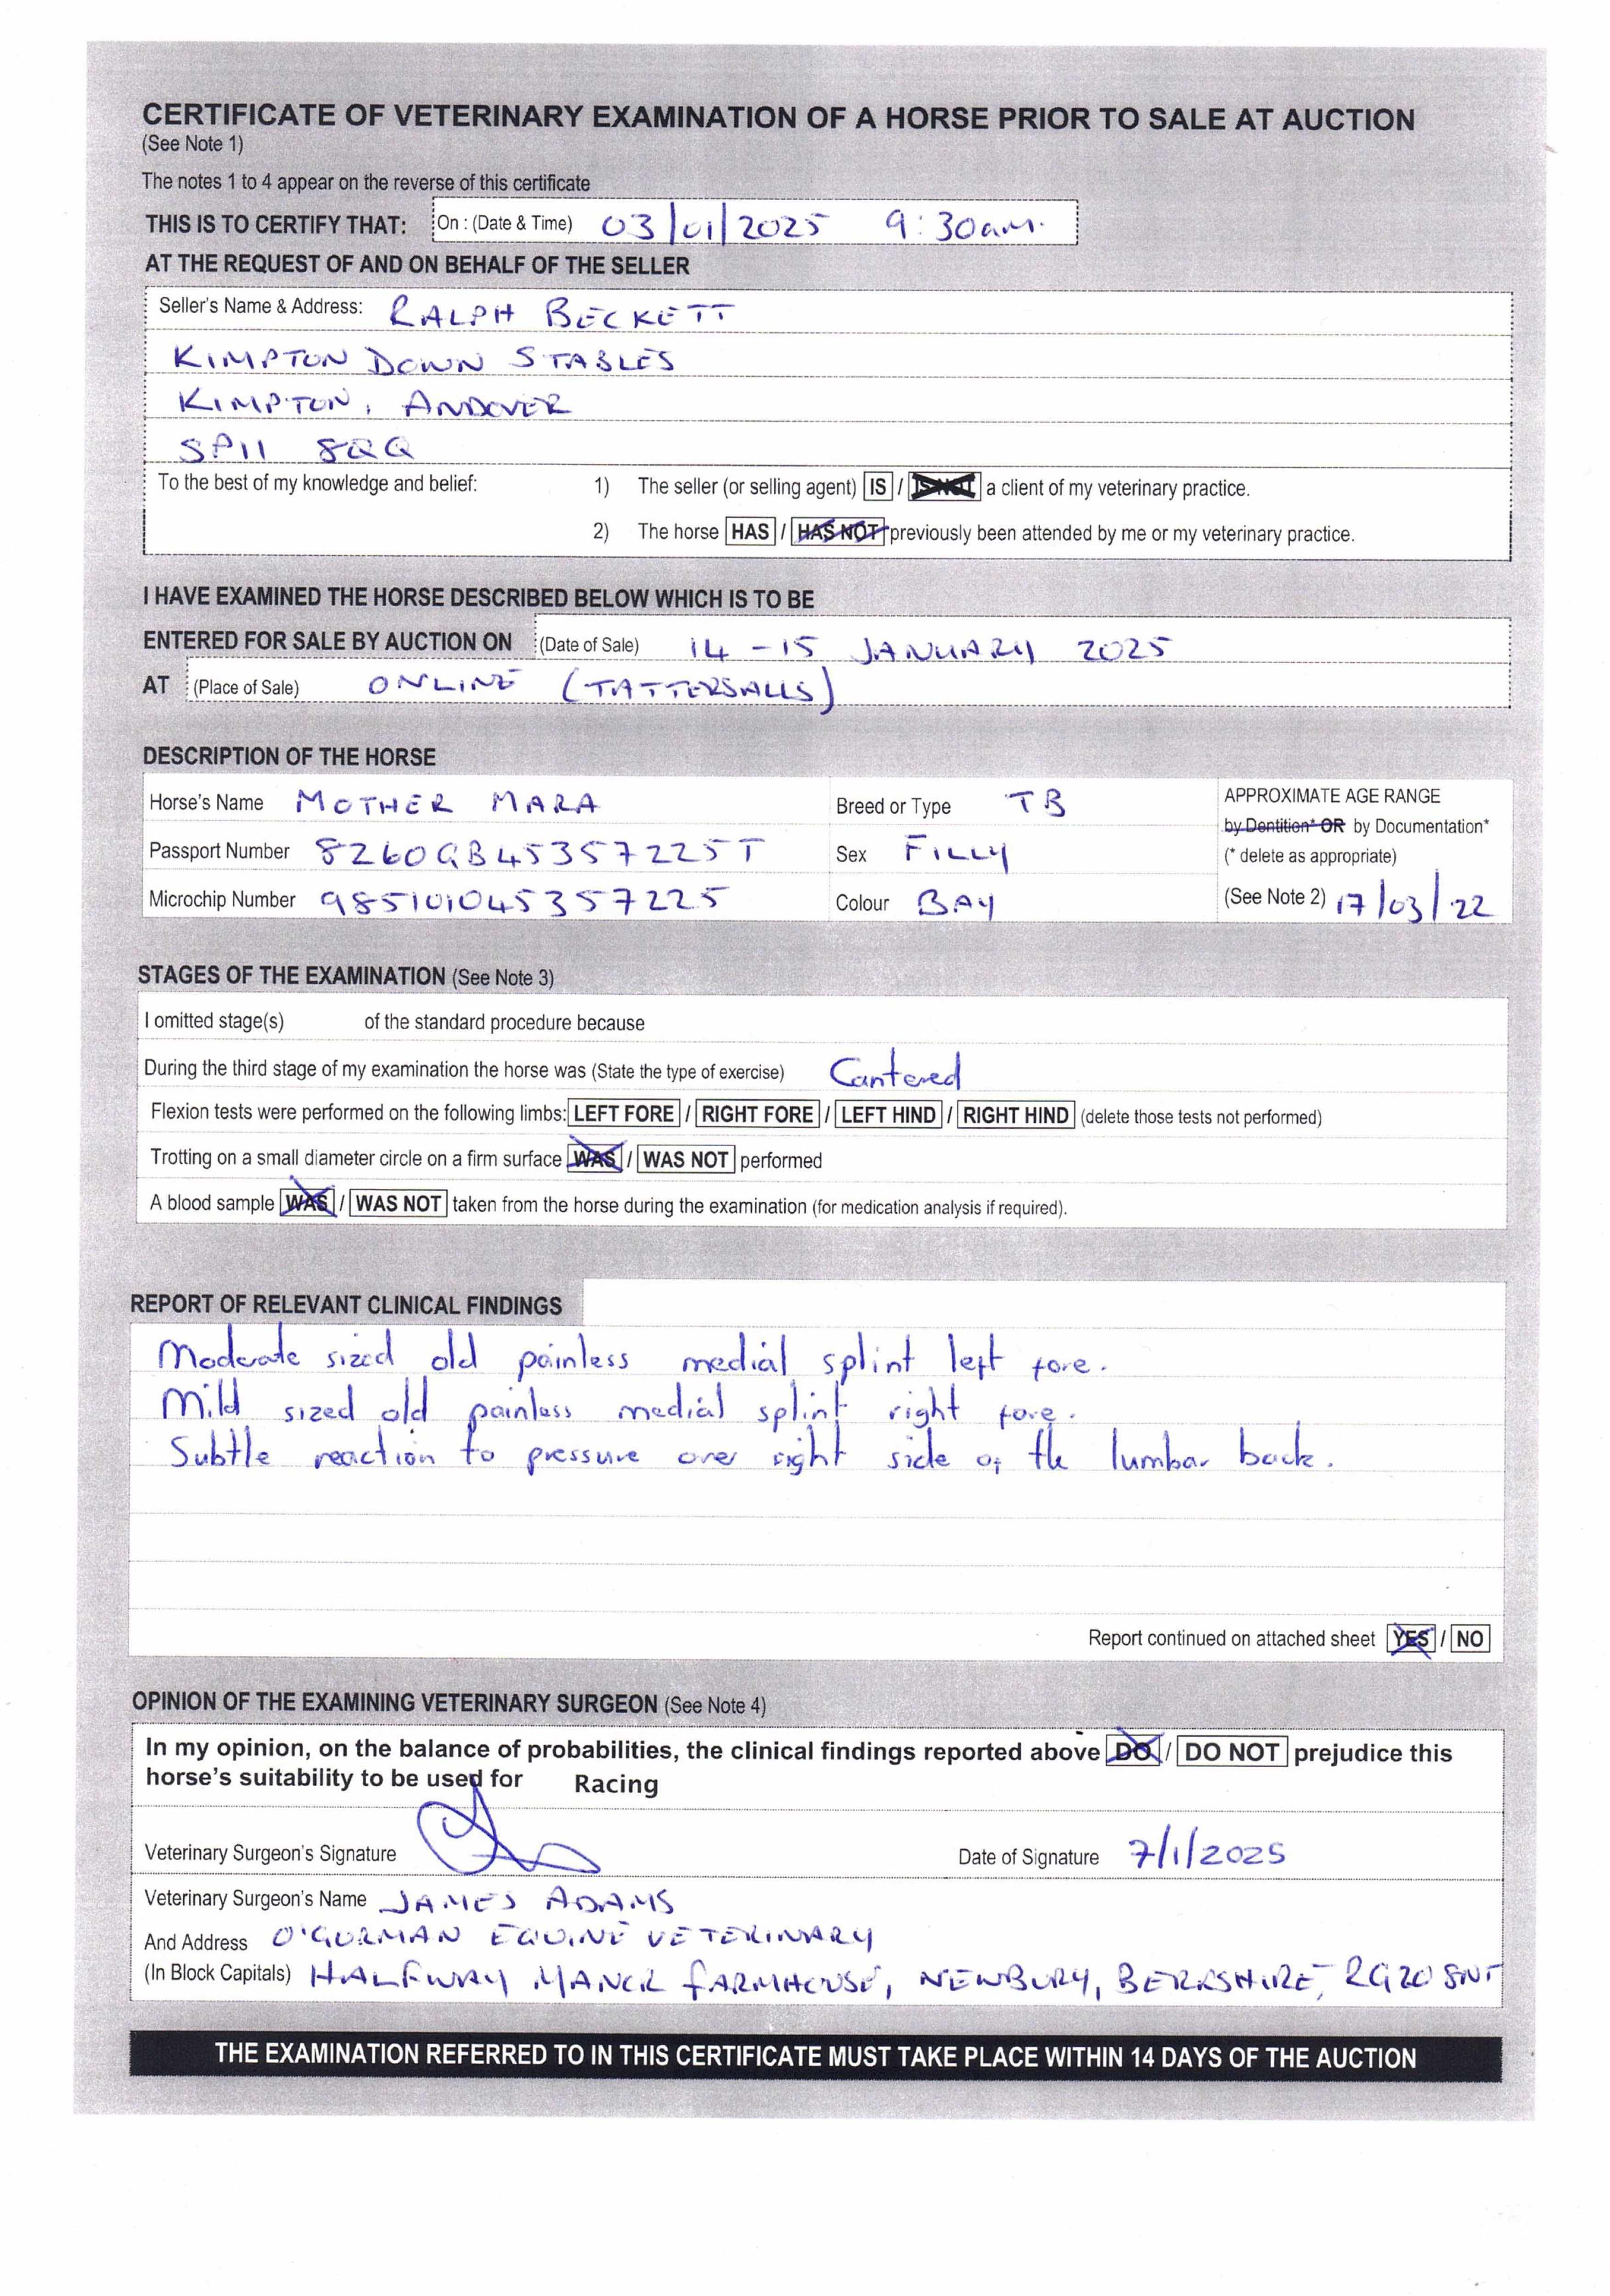 CERTIFICATE OF VETERINARY EXAMINATION OF A HORSE PRIOR TO SALE AT AUCTION
(See Note 1)
The notes 1 to 4 appear on the reverse of this certificate
THIS IS TO CERTIFY THAT: On : (Date & Time) 03/01/2025 9:30am.
AT THE REQUEST OF AND ON BEHALF OF THE SELLER
Seller's Name & Address: RALPH BECKETT
KIMPTON DOWN STABLES
KIMPTON, ANDOVER
SP11 8QQ
To the best of my knowledge and belief: 1) The seller (or selling agent) IS / IS NOT a client of my veterinary practice.
2) The horse HAS / HAS NOT previously been attended by me or my veterinary practice.
I HAVE EXAMINED THE HORSE DESCRIBED BELOW WHICH IS TO BE
ENTERED FOR SALE BY AUCTION ON (Date of Sale) 14 - 15 JANUARY 2025
AT (Place of Sale) ONLINE (TATTERSALLS)
DESCRIPTION OF THE HORSE
Horse's Name MOTHER MARA Breed or Type TB APPROXIMATE AGE RANGE
by Dentition* OR by Documentation*
Passport Number 8260GB45357225T Sex FILLY (* delete as appropriate)
Microchip Number 985101045357225 Colour BAY (See Note 2) 17/03/22
STAGES OF THE EXAMINATION (See Note 3)
I omitted stage(s) of the standard procedure because
During the third stage of my examination the horse was (State the type of exercise) Cantered
Flexion tests were performed on the following limbs: LEFT FORE / RIGHT FORE / LEFT HIND / RIGHT HIND (delete those tests not performed)
Trotting on a small diameter circle on a firm surface WAS / WAS NOT performed
A blood sample WAS / WAS NOT taken from the horse during the examination (for medication analysis if required).
REPORT OF RELEVANT CLINICAL FINDINGS
Moderate sized old painless medial splint left fore.
Mild sized old painless medial splint right fore.
Subtle reaction to pressure over right side of the lumbar back.
Report continued on attached sheet YES / NO
OPINION OF THE EXAMINING VETERINARY SURGEON (See Note 4)
In my opinion, on the balance of probabilities, the clinical findings reported above DO / DO NOT prejudice this
horse's suitability to be used for Racing
Veterinary Surgeon's Signature Date of Signature 7/1/2025
Veterinary Surgeon's Name JAMES ADAMS
And Address O'GORMAN EQUINE VETERINARY
(In Block Capitals) HALFWAY MANOR FARMHOUSE, NEWBURY, BERKSHIRE, RG20 8NT
THE EXAMINATION REFERRED TO IN THIS CERTIFICATE MUST TAKE PLACE WITHIN 14 DAYS OF THE AUCTION